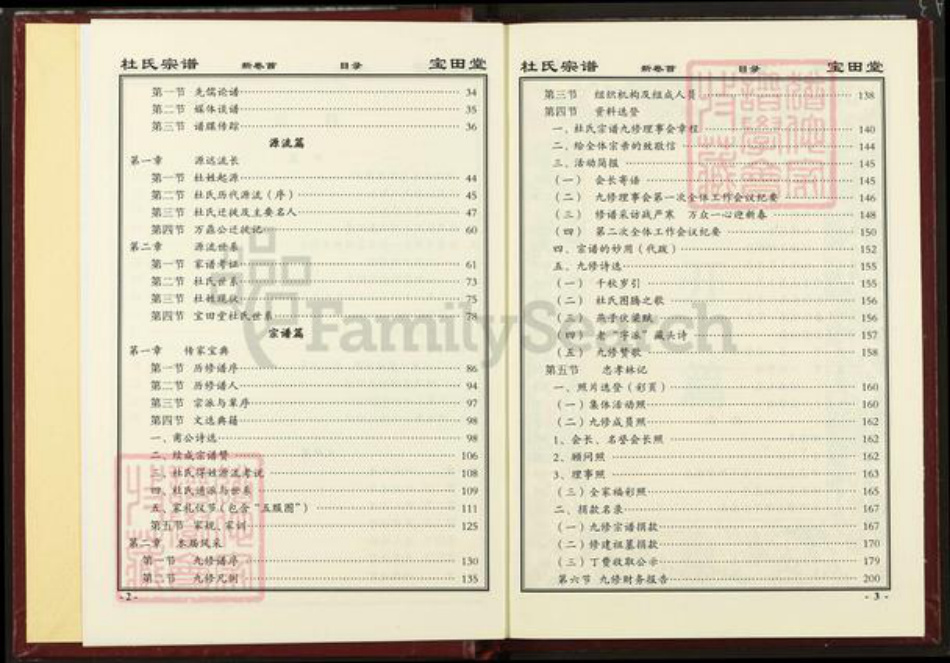 杜氏宗谱 新卷首 目录 宝田堂
第一节 先儒论谱 34
第二节 媒体谈谱 35
第三节 谱牒传踪 36
源流篇
第一章 源远流长
第一节 杜姓起源 44
第二节 杜氏历代源流（序） 45
第三节 杜氏迁拨及主要名人 47
第四节 万鼎公迁拨记 60
第二章 源流世系
第一节 家谱考证 61
第二节 杜氏世系 73
第三节 杜姓现状 75
第四节 宝田堂杜氏世系 78
宗谱篇
第一章 传家宝典
第一节 历修谱序 86
第二节 历修谱人 94
第三节 宗派与辈序 97
第四节 文选典籍 98
一、甫公诗选 98
二、续成宗谱赞 106
三、杜氏得姓源流考说 108
四、杜氏通派与世系 109
五、家礼仪节（包含“五服图”） 111
第五节 家规、家训 125
第二章 本届风采
第一节 九修谱序 130
第二节 九修凡例 135
- 2 -
杜氏宗谱 新卷首 目录 宝田堂
第三节 组织机构及组成人员 138
第四节 资料选登
一、杜氏宗谱九修理事会章程 140
二、给全体宗亲的致敬信 144
三、活动简报 145
（一） 会长寄语 145
（二） 九修理事会第一次全体工作会议纪要 146
（三） 修谱采访战严寒 万众一心迎新春 148
（四） 第二次全体工作会议纪要 150
四、宗谱的妙用（代跋） 152
五、九修诗选 155
（一） 千秋岁引 155
（二） 杜氏图腾之歌 156
（三） 燕子伏梁赋 156
（四） 老“字派”藏头诗 157
（五） 九修赞歌 158
第五节 忠孝林记
一、照片选登（彩页） 160
（一）集体活动照 160
（二）九修成员照 162
1、会长、名誉会长照 162
2、顾问照 162
3、理事照 163
（三）全家福彩照 165
二、捐款名录 167
（一）九修宗谱捐款 167
（二）修建祖墓捐款 170
（三）丁费收取公示 179
第六节 九修财务报告 200
- 3 -
FamilySearch